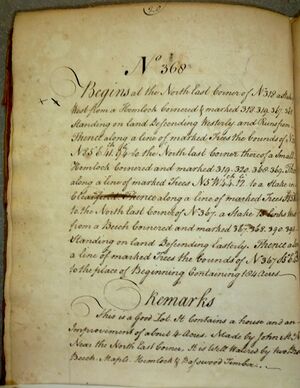 No 368
Begins at the North East Corner of No 318 a
West from a Hemlock Cornered & marked 318. 319. 367. 368
Standing on land Descending Westerly and Runs from
Thence along a line of marked Trees the Bounds of No
to the North East Corner thereof a Small
Hemlock Cornered and marked 319. 320. 368. 369. Thence
along a line of marked Trees to a Stake
Thence along a line of marked Trees
to the North East Corner of No 367. a Stake Links West
from a Beech Cornered and marked 367. 368. 390. 391
Standing on land Descending Easterly. Thence along
a line of marked Trees the Bounds of No 367
to the place of Beginning Containing 154 Acres
Remarks
This is a Good Lot. It Contains a house and an
Improvement of about 4 Acres. Made by John
Near the North East Corner. It is Well Watered by two
Beech. Maple. Hemlock & Basswood Timber.